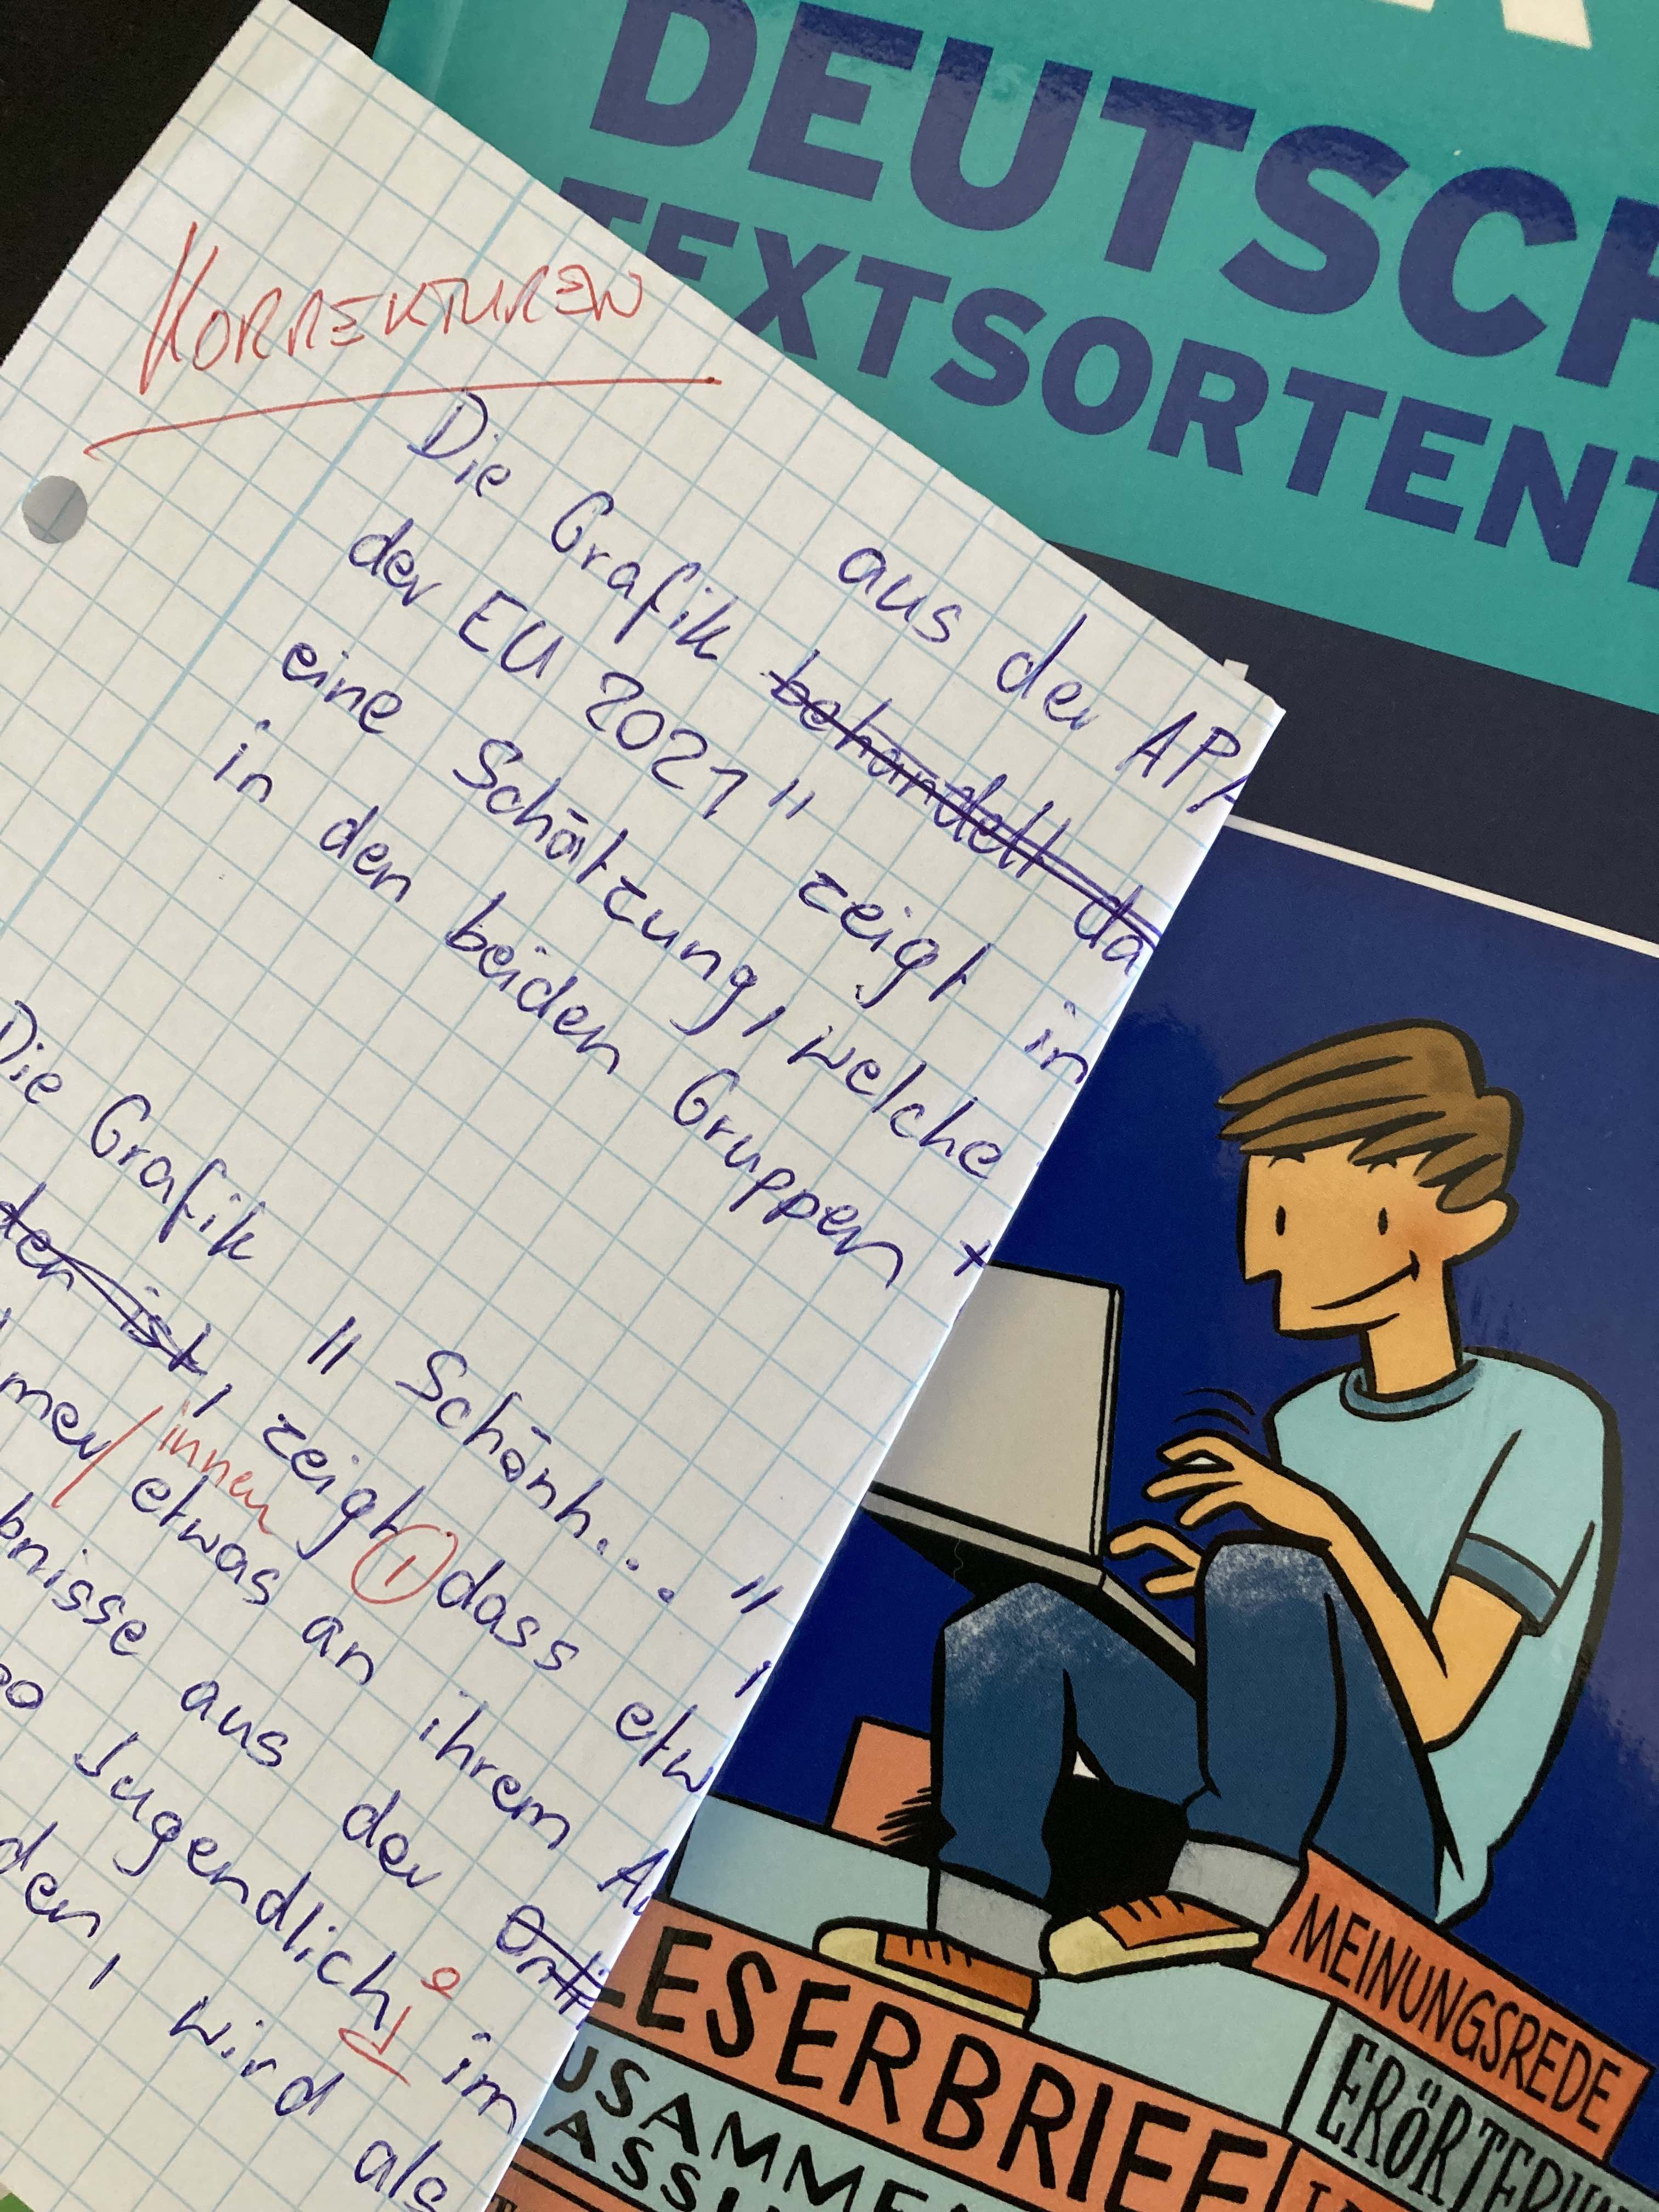 DEUTSCH
TEXTSORTENT
KORREKTUREN
Die Grafik aus der APA
der EU 2021" behandelt da
eine Schätzung, welche
zeigt in
in den beiden Gruppen
Die Grafik "Schönh..."
den ist, zeigt, dass etw
mer/innen etwas an ihrem
bnisse aus der
Jugendliche im
den, wird als
MEINUNGSREDE
LESERBRIEF
ERÖRTERUN
USAMMEN
ASSU